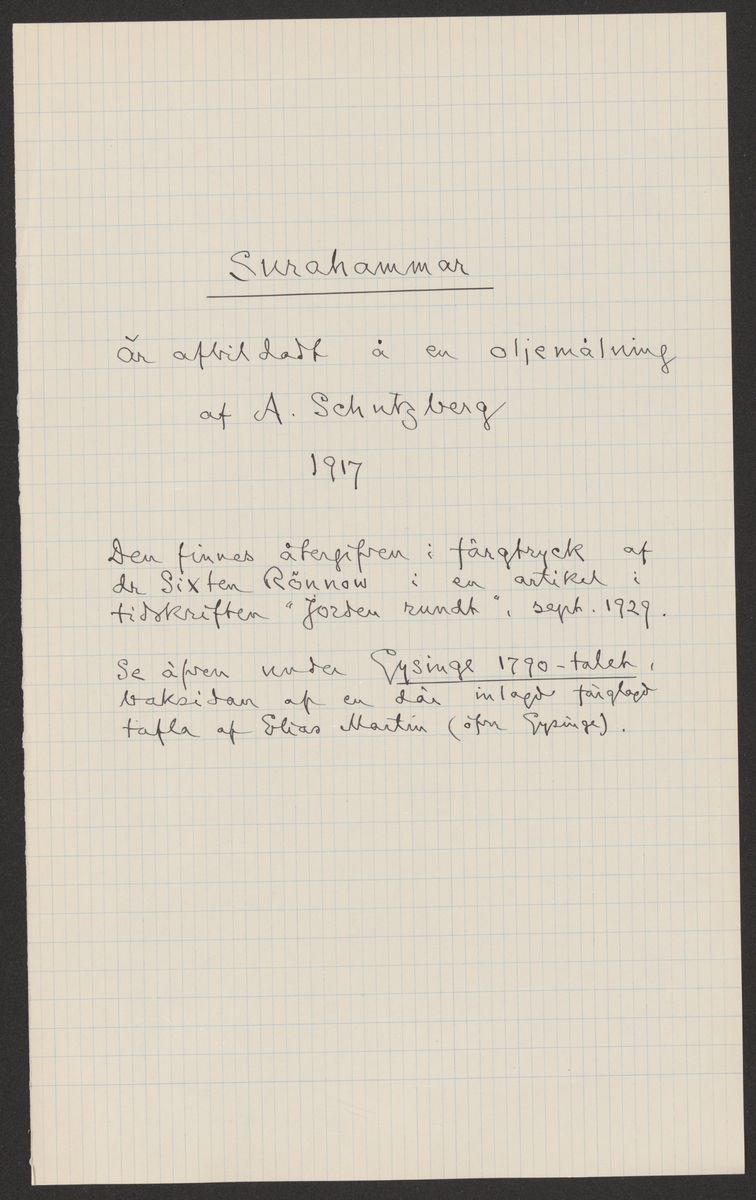 Surahammar
är afbildadt å en oljemålning
af A. Schutzberg
1917
Den finnes återgifven i färgtryck af
dr Sixten Rönnow i en artikel i
tidskriften "Jorden rundt", sept. 1929.
Se äfven under Gysinge 1790-talet,
baksidan af en där inlagd färglagd
tafla af Elias Martin (öfver Gysinge).